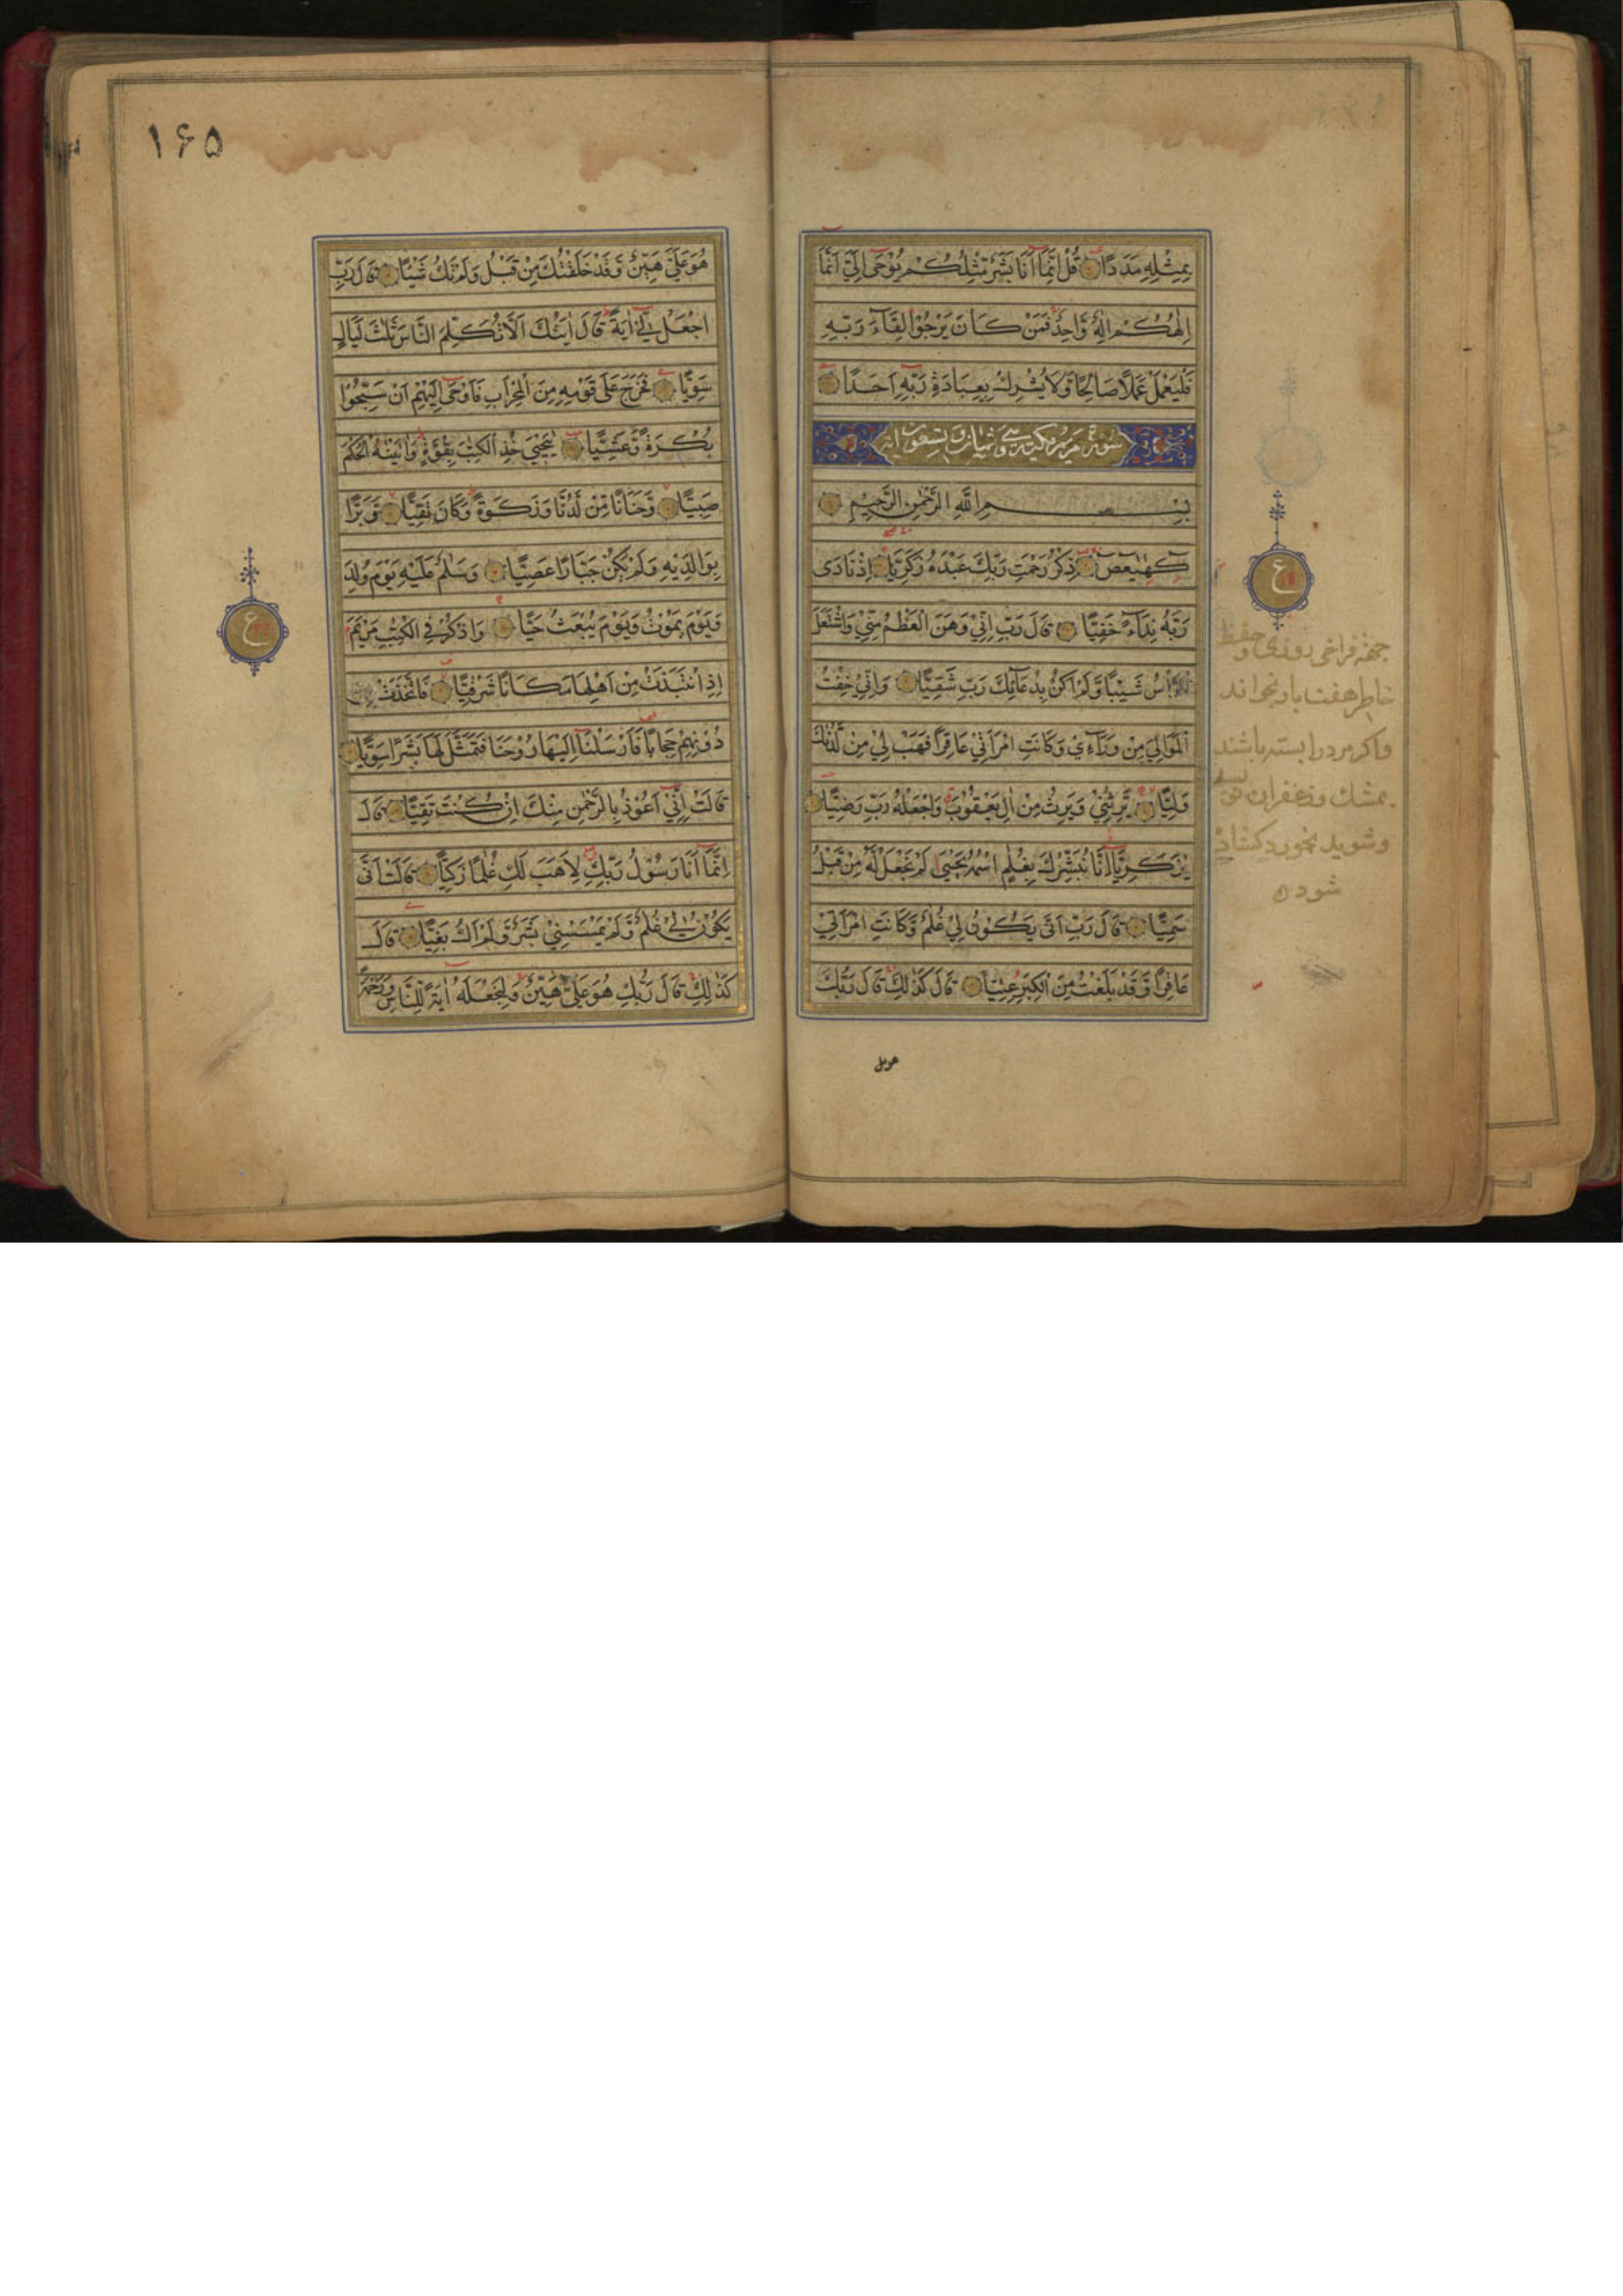 بِمِثْلِهِ مَدَدًا قُلْ اِنَّمَا اَنَا بَشَرٌ مِّثْلُكُمْ يُوْحٰى اِلَيَّ اَنَّمَا
اِلٰهُكُمْ اِلٰهٌ وَّاحِدٌ فَمَنْ كَانَ يَرْجُوْا لِقَآءَ رَبِّهٖ
فَلْيَعْمَلْ عَمَلًا صَالِحًا وَّلَا يُشْرِكْ بِعِبَادَةِ رَبِّهٖ اَحَدًا
سورة مريم مكية وهي ثمان و تسعون اية
بِسْمِ اللّٰهِ الرَّحْمٰنِ الرَّحِيْمِ
كٓهٰيٰعٓصٓ ذِكْرُ رَحْمَتِ رَبِّكَ عَبْدَهُ زَكَرِيَّا اِذْ نَادٰى
رَبَّهُ نِدَآءً خَفِيًّا قَالَ رَبِّ اِنِّيْ وَهَنَ الْعَظْمُ مِنِّيْ وَاشْتَعَلَ
الرَّاْسُ شَيْبًا وَّلَمْ اَكُنْ بِدُعَآئِكَ رَبِّ شَقِيًّا وَاِنِّيْ خِفْتُ
الْمَوَالِيَ مِنْ وَّرَآءِيْ وَكَانَتِ امْرَاَتِيْ عَاقِرًا فَهَبْ لِيْ مِنْ لَّدُنْكَ
وَلِيًّا يَّرِثُنِيْ وَيَرِثُ مِنْ اٰلِ يَعْقُوْبَ وَاجْعَلْهُ رَبِّ رَضِيًّا
يٰزَكَرِيَّا اِنَّا نُبَشِّرُكَ بِغُلٰمٍ اسْمُهُ يَحْيٰى لَمْ نَجْعَلْ لَّهُ مِنْ قَبْلُ
سَمِيًّا قَالَ رَبِّ اَنّٰى يَكُوْنُ لِيْ غُلٰمٌ وَّكَانَتِ امْرَاَتِيْ
عَاقِرًا وَّقَدْ بَلَغْتُ مِنَ الْكِبَرِ عِتِيًّا قَالَ كَذٰلِكَ قَالَ رَبُّكَ
هو على
ع
جهة فراخى روزى و حفظ
خاطر هفت بار بخواند
واكر مرد را بسته باشند
بمشك و زعفران نويسد
وشويد بخورد كشاده
شود
١۶۵
هُوَ عَلَيَّ هَيِّنٌ وَّقَدْ خَلَقْتُكَ مِنْ قَبْلُ وَلَمْ تَكُ شَيْئًا قَالَ رَبِّ
اجْعَلْ لِّيْ اٰيَةً قَالَ اٰيَتُكَ اَلَّا تُكَلِّمَ النَّاسَ ثَلٰثَ لَيَالٍ
سَوِيًّا فَخَرَجَ عَلٰى قَوْمِهٖ مِنَ الْمِحْرَابِ فَاَوْحٰى اِلَيْهِمْ اَنْ سَبِّحُوْا
بُكْرَةً وَّعَشِيًّا يٰيَحْيٰى خُذِ الْكِتٰبَ بِقُوَّةٍ وَاٰتَيْنٰهُ الْحُكْمَ
صَبِيًّا وَّحَنَانًا مِّنْ لَّدُنَّا وَزَكٰوةً وَكَانَ تَقِيًّا وَّبَرًّا
بِوَالِدَيْهِ وَلَمْ يَكُنْ جَبَّارًا عَصِيًّا وَسَلٰمٌ عَلَيْهِ يَوْمَ وُلِدَ
وَيَوْمَ يَمُوْتُ وَيَوْمَ يُبْعَثُ حَيًّا وَاذْكُرْ فِي الْكِتٰبِ مَرْيَمَ
اِذِ انْتَبَذَتْ مِنْ اَهْلِهَا مَكَانًا شَرْقِيًّا فَاتَّخَذَتْ مِنْ
دُوْنِهِمْ حِجَابًا فَاَرْسَلْنَا اِلَيْهَا رُوْحَنَا فَتَمَثَّلَ لَهَا بَشَرًا سَوِيًّا
قَالَتْ اِنِّيْ اَعُوْذُ بِالرَّحْمٰنِ مِنْكَ اِنْ كُنْتَ تَقِيًّا قَالَ
اِنَّمَا اَنَا رَسُوْلُ رَبِّكِ لِاَهَبَ لَكِ غُلٰمًا زَكِيًّا قَالَتْ اَنّٰى
يَكُوْنُ لِيْ غُلٰمٌ وَّلَمْ يَمْسَسْنِيْ بَشَرٌ وَّلَمْ اَكُ بَغِيًّا قَالَ
كَذٰلِكِ قَالَ رَبُّكِ هُوَ عَلَيَّ هَيِّنٌ وَلِنَجْعَلَهُ اٰيَةً لِّلنَّاسِ وَرَحْمَةً
ع